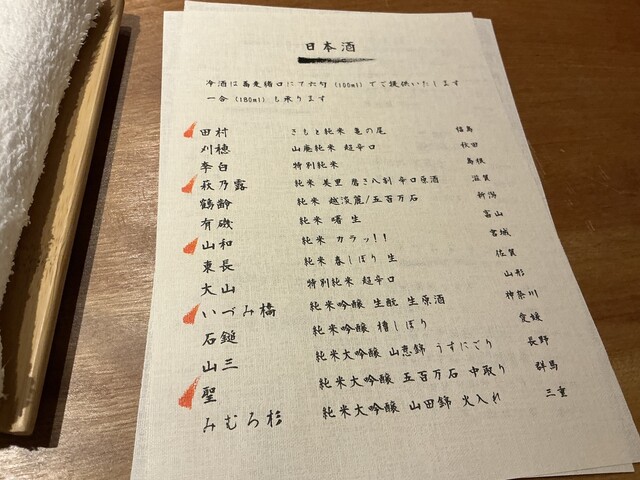 日本酒
冷酒は蕎麦猪口にて六勺(100ml)でご提供いたします
一合(180ml)も承ります
田村 きもと純米 亀の尾 福島
刈穂 山廃純米 超辛口 秋田
李白 特別純米 島根
萩乃露 純米 美里 磨き八割 辛口原酒 滋賀
鶴齢 純米 越淡麗/五百万石 新潟
有磯 純米 曙 生 富山
山和 純米 カラッ!! 宮城
東長 純米 春しぼり 生 佐賀
大山 特別純米 超辛口 山形
いづみ橋 純米吟醸 生酛 生原酒 神奈川
石鎚 純米吟醸 槽しぼり 愛媛
山三 純米大吟醸 山恵錦 うすにごり 長野
聖 純米大吟醸 五百万石 中取り 群馬
みむろ杉 純米大吟醸 山田錦 火入れ 三重